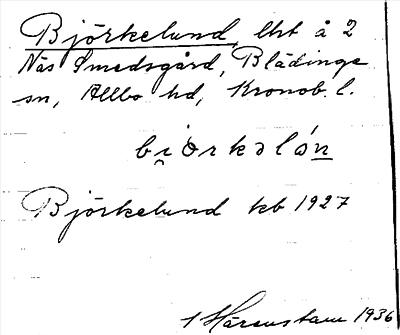 Björkelund, lht å 2
Näs Smedsgård, Blädinge
sn, Allbo hd, Kronob. l.
Björkelund kb 1927
1936